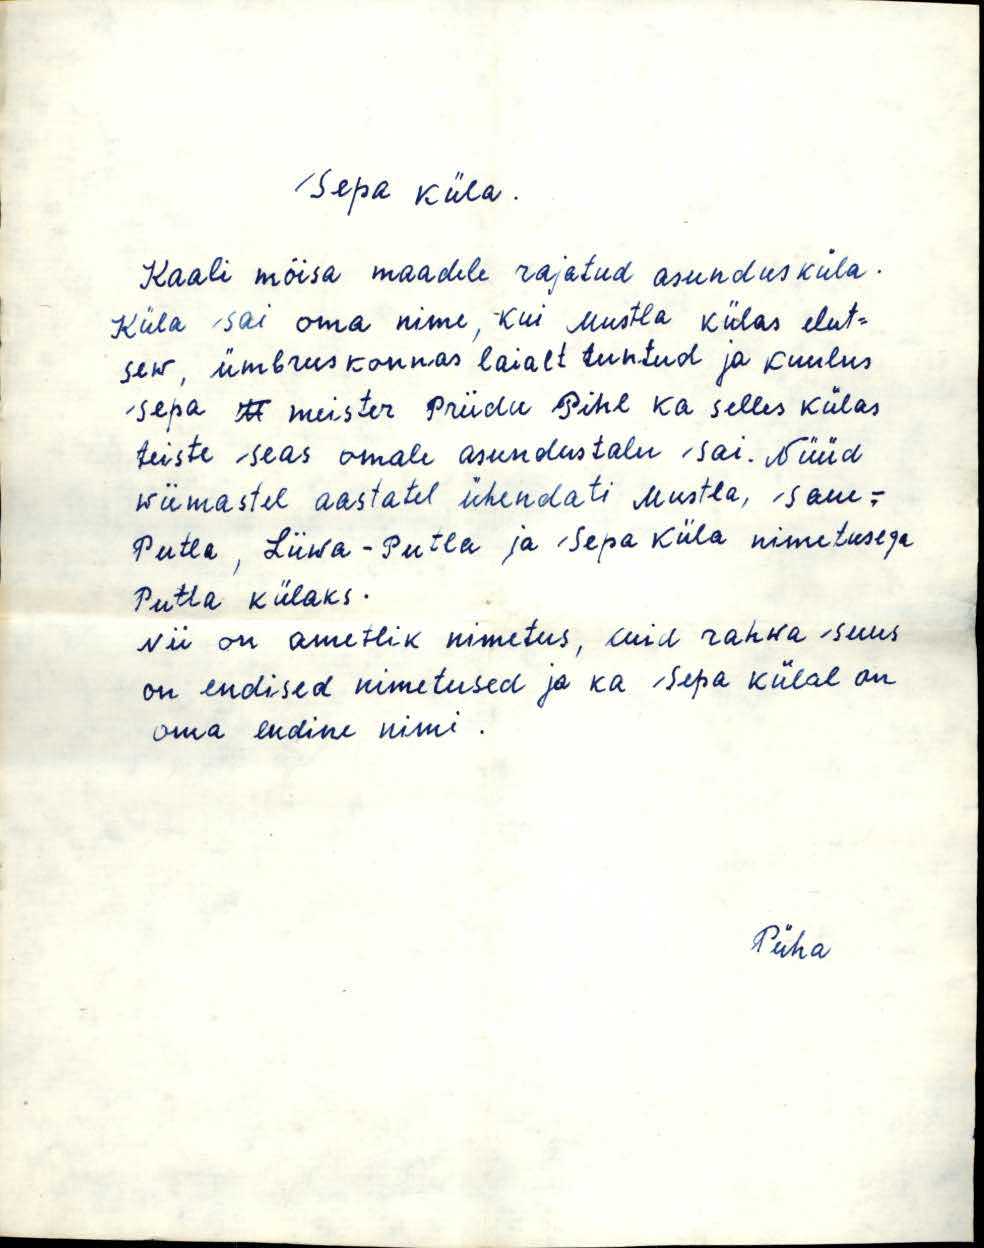 Sepa küla.
Kaali mõisa maadele rajatud asundusküla.
Küla sai oma nime, kui Mustla külas elut=
sew, ümbruskonnas laialt tuntud ja kuulus
sepa meister Priidu Pihl ka selles külas
teiste seas omale asundustalu sai. Nüüd
wiimastel aastatel ühendati Mustla, Saue=
Putla, Liiwa-Putla ja Sepa küla nimetusega
Putla külaks.
Nii on ametlik nimetus, kuid rahwa suus
on endised nimetused ja ka Sepa külal on
oma endine nimi.
Püha